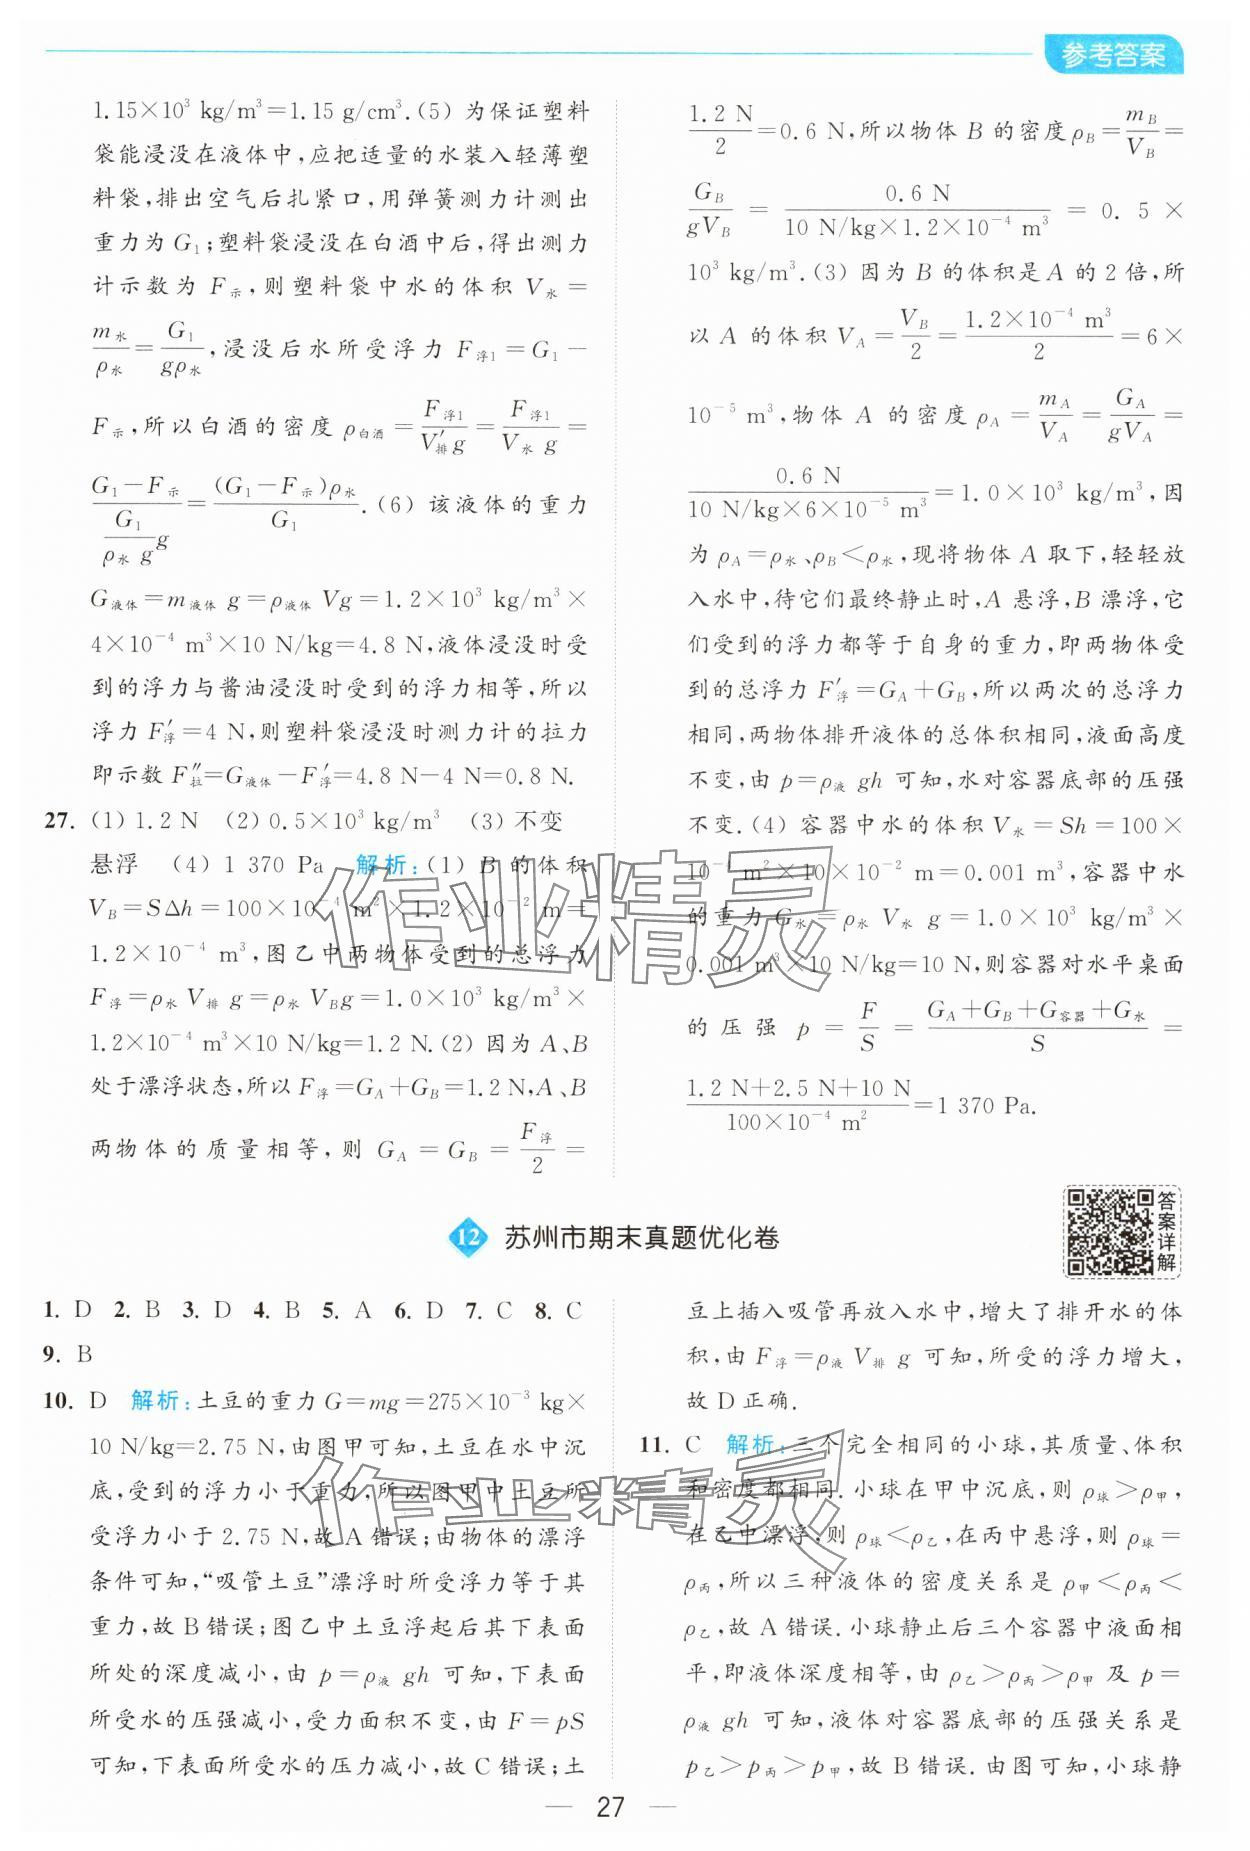 参考答案
1.15×10³ kg/m³=1.15 g/cm³.(5) 为保证塑料
袋能浸没在液体中,应把适量的水装入轻薄塑
料袋,排出空气后扎紧口,用弹簧测力计测出
重力为 G₁;塑料袋浸没在白酒中后,得出测力
计示数为 F示,则塑料袋中水的体积 V水=
m水/ρ水=G₁/gρ水,浸没后水所受浮力 F浮1=G₁-
F示,所以白酒的密度 ρ白酒=F浮1/V′排 g=F浮1/V水 g=
(G₁-F示)/(G₁/ρ水 g)g=(G₁-F示)ρ水/G₁.(6) 该液体的重力
G液体=m液体 g=ρ液体 Vg=1.2×10³ kg/m³×
4×10⁻⁴ m³×10 N/kg=4.8 N,液体浸没时受
到的浮力与酱油浸没时受到的浮力相等,所以
浮力 F′浮=4 N,则塑料袋浸没时测力计的拉力
即示数 F″拉=G液体-F′浮=4.8 N-4 N=0.8 N.
27. (1) 1.2 N (2) 0.5×10³ kg/m³ (3) 不变
悬浮 (4) 1 370 Pa 解析:(1) B 的体积
V_B=SΔh=100×10⁻⁴ m²×1.2×10⁻² m=
1.2×10⁻⁴ m³,图乙中两物体受到的总浮力
F浮=ρ水 V排 g=ρ水 V_Bg=1.0×10³ kg/m³×
1.2×10⁻⁴ m³×10 N/kg=1.2 N.(2) 因为 A、B
处于漂浮状态,所以 F浮=G_A+G_B=1.2 N,A、B
两物体的质量相等,则 G_A=G_B=F浮/2=
1.2 N/2=0.6 N,所以物体 B 的密度 ρ_B=m_B/V_B=
G_B/gV_B=0.6 N/(10 N/kg×1.2×10⁻⁴ m³)=0.5×
10³ kg/m³.(3) 因为 B 的体积是 A 的 2 倍,所
以 A 的体积 V_A=V_B/2=1.2×10⁻⁴ m³/2=6×
10⁻⁵ m³,物体 A 的密度 ρ_A=m_A/V_A=G_A/gV_A=
0.6 N/(10 N/kg×6×10⁻⁵ m³)=1.0×10³ kg/m³,因
为 ρ_A=ρ水、ρ_B<ρ水,现将物体 A 取下,轻轻放
入水中,待它们最终静止时,A 悬浮,B 漂浮,它
们受到的浮力都等于自身的重力,即两物体受
到的总浮力 F′浮=G_A+G_B,所以两次的总浮力
相同,两物体排开液体的总体积相同,液面高度
不变,由 p=ρ液 gh 可知,水对容器底部的压强
不变.(4) 容器中水的体积 V水=Sh=100×
10⁻⁴ m²×10×10⁻² m=0.001 m³,容器中水
的重力 G水=ρ水 V水 g=1.0×10³ kg/m³×
0.001 m³×10 N/kg=10 N,则容器对水平桌面
的压强 p=F/S=(G_A+G_B+G容器+G水)/S=
(1.2 N+2.5 N+10 N)/(100×10⁻⁴ m²)=1 370 Pa.
作业精灵
12 苏州市期末真题优化卷
答案详解
1. D 2. B 3. D 4. B 5. A 6. D 7. C 8. C
9. B
10. D 解析:土豆的重力 G=mg=275×10⁻³ kg×
10 N/kg=2.75 N,由图甲可知,土豆在水中沉
底,受到的浮力小于重力,所以图甲中土豆所
受浮力小于 2.75 N,故 A 错误;由物体的漂浮
条件可知,“吸管土豆”漂浮时所受浮力等于其
重力,故 B 错误;图乙中土豆浮起后其下表面
所处的深度减小,由 p=ρ液 gh 可知,下表面
所受水的压强减小,受力面积不变,由 F=pS
可知,下表面所受水的压力减小,故 C 错误;土
豆上插入吸管再放入水中,增大了排开水的体
积,由 F浮=ρ液 V排 g 可知,所受的浮力增大,
故 D 正确.
11. C 解析:三个完全相同的小球,其质量、体积
和密度都相同.小球在甲中沉底,则 ρ球>ρ甲,
在乙中漂浮,则 ρ球<ρ乙,在丙中悬浮,则 ρ球=
ρ丙,所以三种液体的密度关系是 ρ甲<ρ丙<
ρ乙,故 A 错误.小球静止后三个容器中液面相
平,即液体深度相等,由 ρ乙>ρ丙>ρ甲 及 p=
ρ液 gh 可知,液体对容器底部的压强关系是
p乙>p丙>p甲,故 B 错误.由图可知,小球静
作业精灵
— 27 —